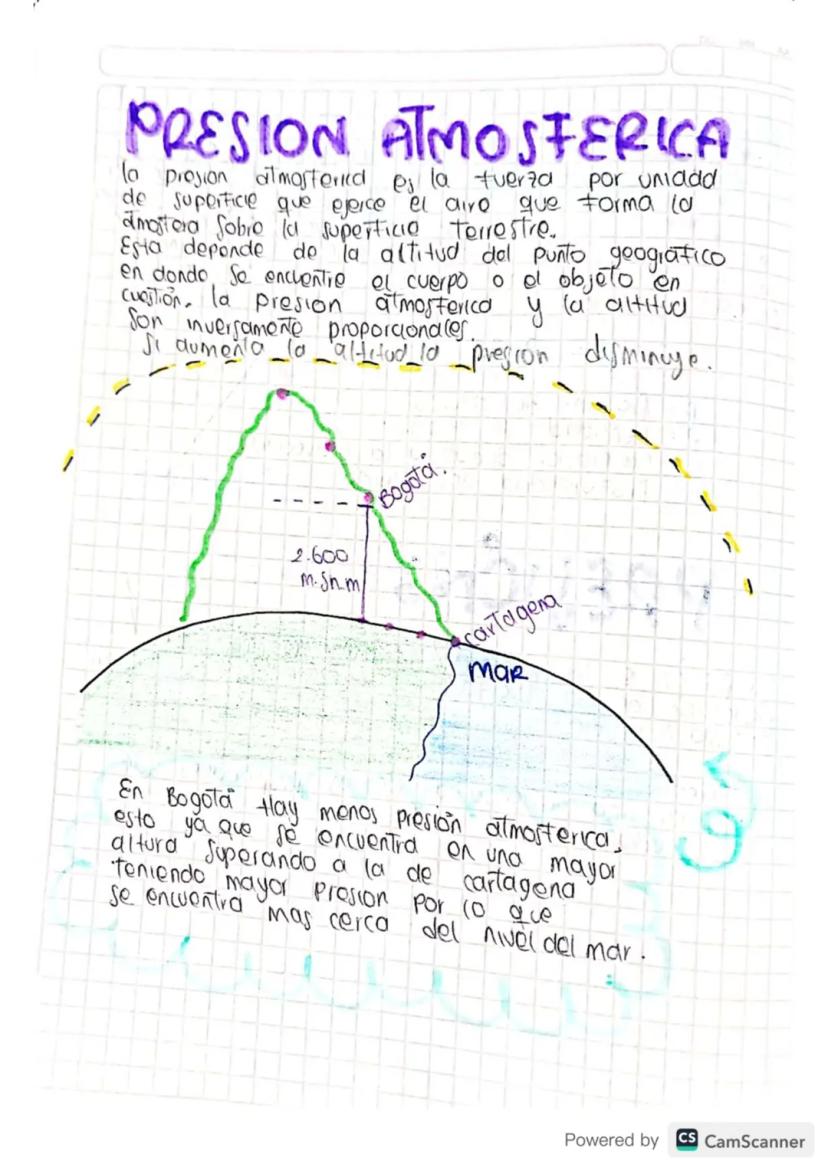 PRESION ATMOSFERICA
la presion atmosferica es la fuerza por unidad
de superficie que ejerce el aire que forma la
atmosfera sobre la superficie terrestre.
Esta depende de la altitud del punto geografico
en donde se encuentre el cuerpo o el objeto en
cuestión. la presion atmosferica y la altitud
son inversamente proporcionales.
Si aumenta la altitud la presion disminuye.
Bogotá.
2.600
m.sn.m
cartagena
MAR
En Bogotá Hay menos presión atmosferica,
esto ya que se encuentra en una mayor
altura superando a la de cartagena
teniendo mayor presion por lo que
se encuentra mas cerca del nivel del mar.
Powered by CS CamScanner